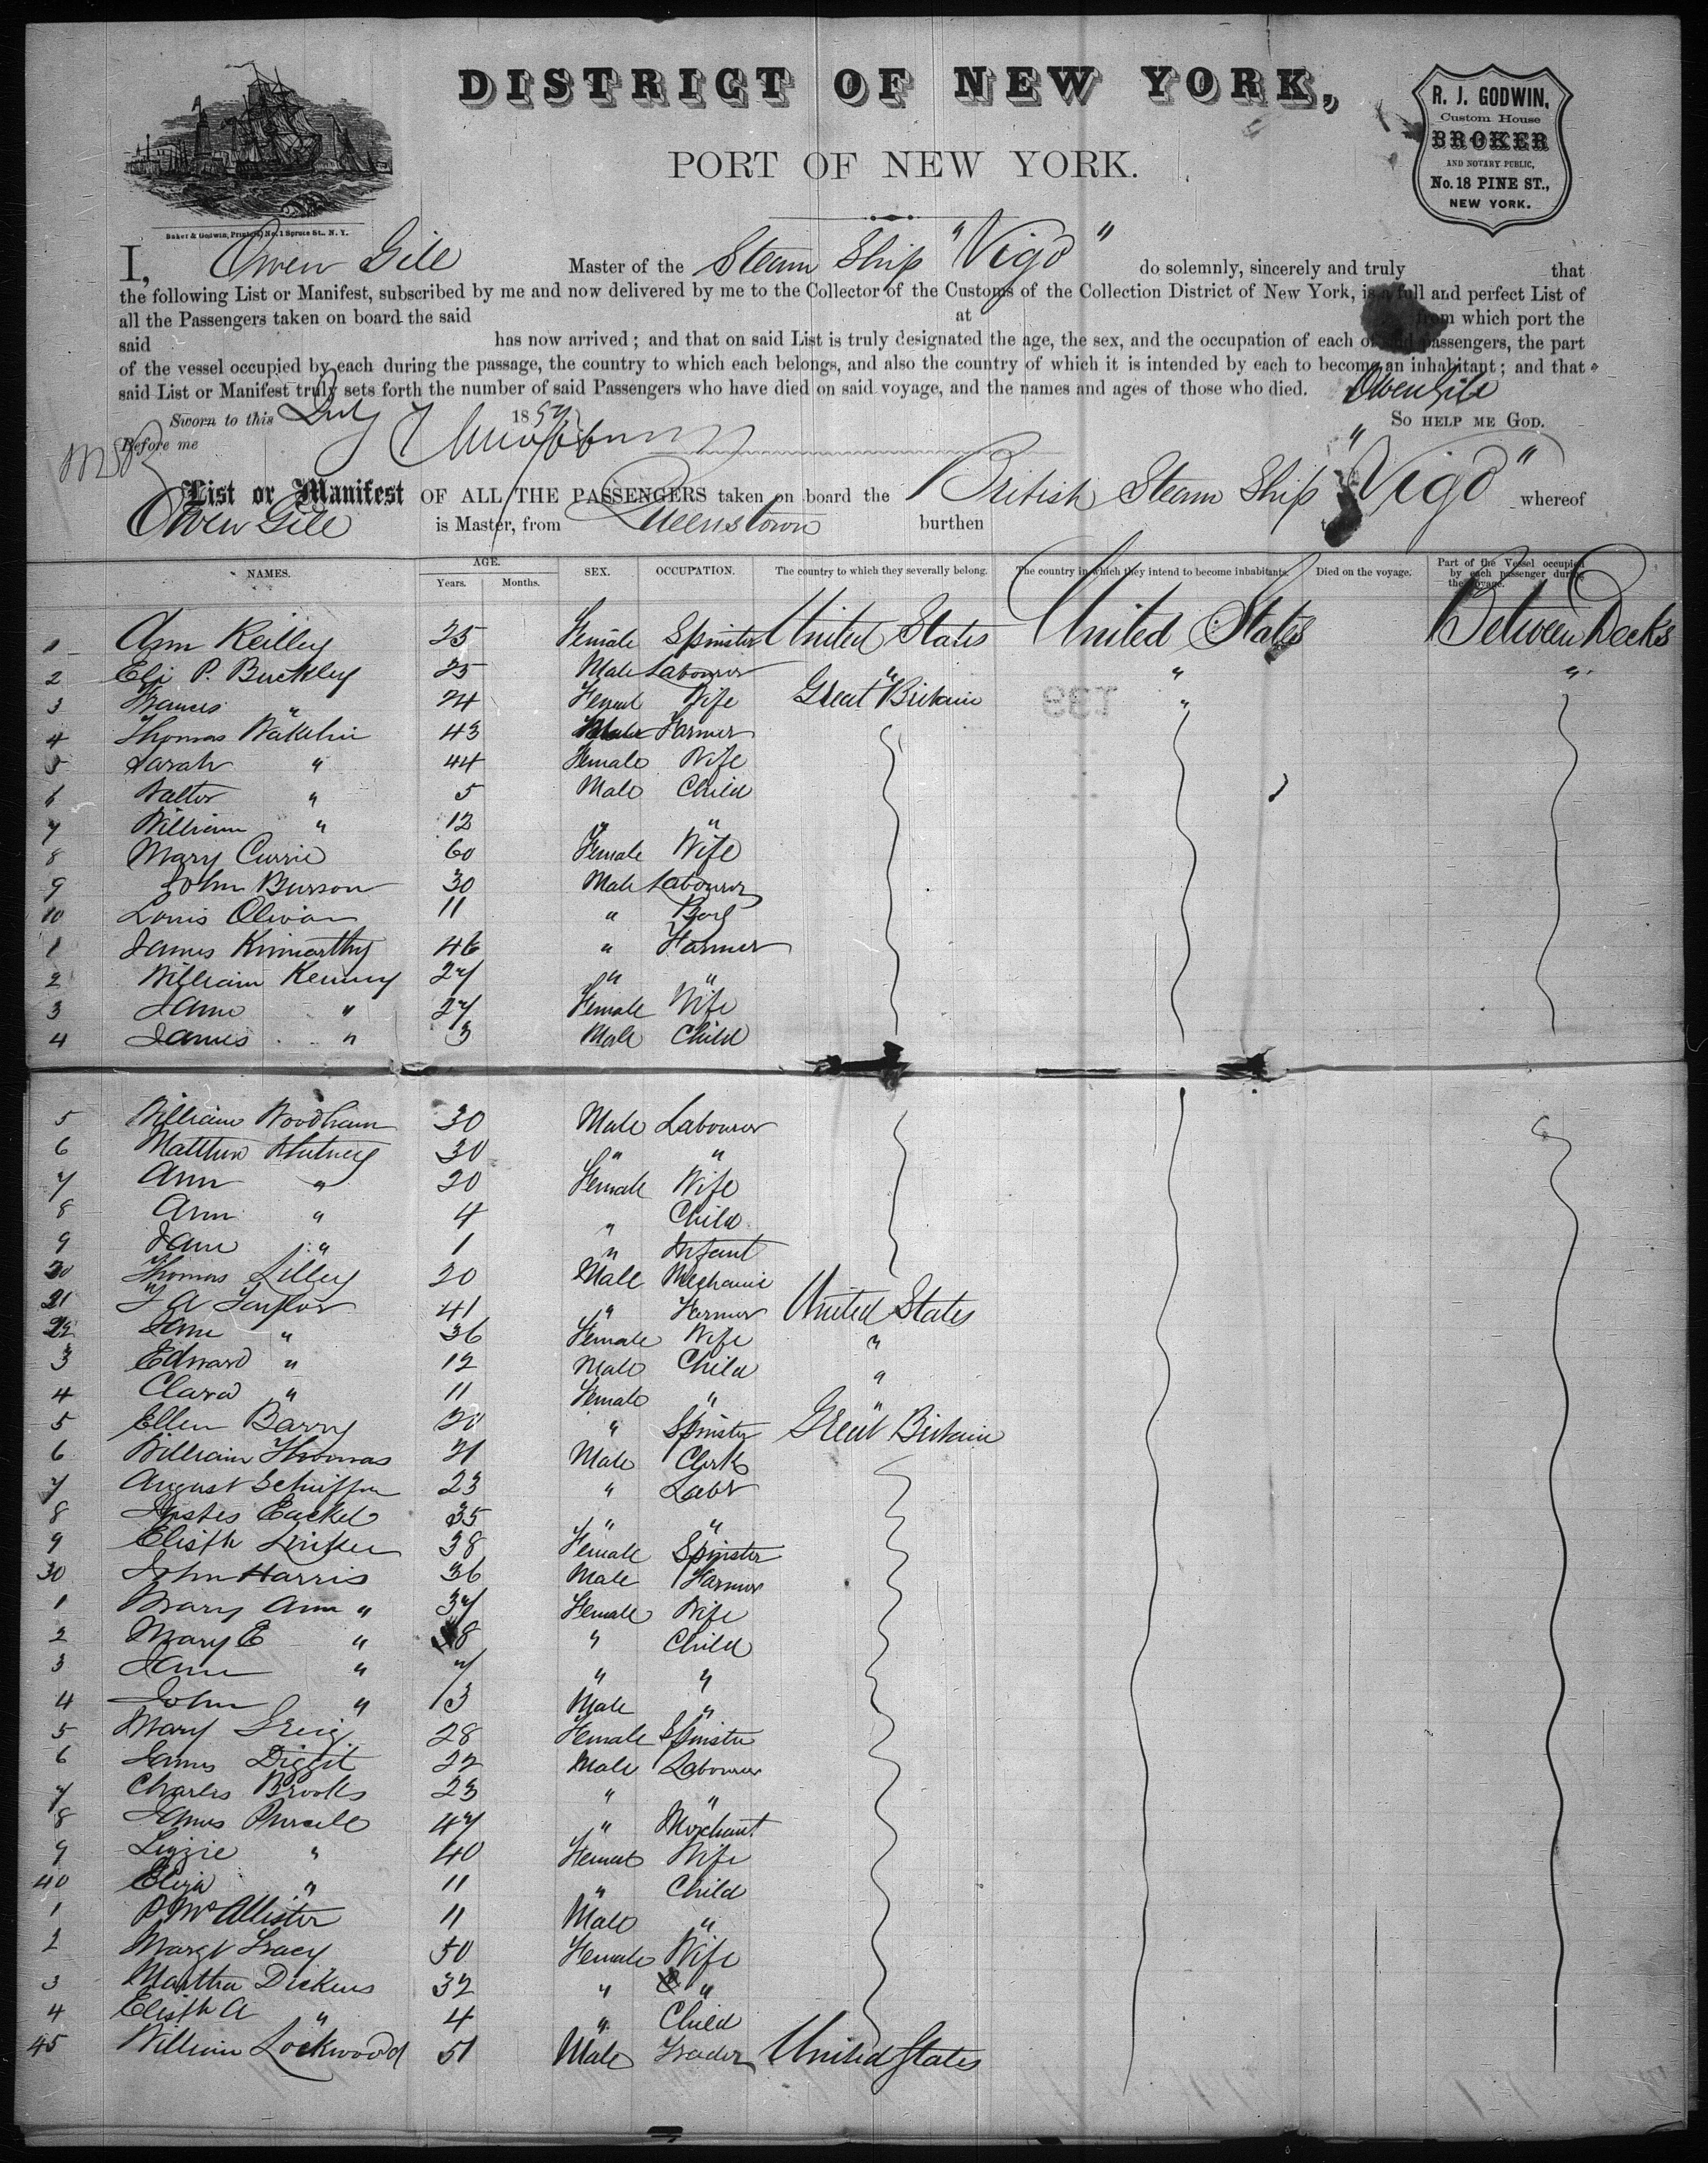 DISTRICT OF NEW YORK,
PORT OF NEW YORK.
R. J. GODWIN,
Custom House
BROKER
AND NOTARY PUBLIC,
No. 18 PINE ST.,
NEW YORK.
Baker & Godwin, Printers, No. 1 Spruce St., N. Y.
I, Owen Gile Master of the Steam Ship "Vigo" do solemnly, sincerely and truly that
the following List or Manifest, subscribed by me and now delivered by me to the Collector of the Customs of the Collection District of New York, is a full and perfect List of
all the Passengers taken on board the said at from which port the
said has now arrived; and that on said List is truly designated the age, the sex, and the occupation of each of said passengers, the part
of the vessel occupied by each during the passage, the country to which each belongs, and also the country of which it is intended by each to become an inhabitant; and that
said List or Manifest truly sets forth the number of said Passengers who have died on said voyage, and the names and ages of those who died. Owen Gile
Sworn to this July 7 18 59 SO HELP ME GOD.
Before me
List or Manifest OF ALL THE PASSENGERS taken on board the British Steam Ship "Vigo" whereof
Owen Gile is Master, from Queenstown burthen
NAMES. AGE. Years. Months. SEX. OCCUPATION. The country to which they severally belong. The country in which they intend to become inhabitants. Died on the voyage. Part of the Vessel occupied by each passenger during the voyage.
1 Ann Reilley 25 Female Spinster United States United States Between Decks
2 Eli P. Buckley 25 Male Labourer " " "
3 Frances " 24 Female Wife Great Britain "
4 Thomas Wakelin 43 Male Farmer
5 Sarah " 44 Female Wife
6 Walter " 5 Male Child
7 William " 12 " "
8 Mary Currie 60 Female Wife
9 John Burson 30 Male Labourer
10 Louis 11 " Boy
1 James 46 " Farmer
2 William Kenny 27 " "
3 Jane " 27 Female Wife
4 James " 3 Male Child
5 William Woodham 30 Male Labourer
6 Matthew 30 " "
7 Ann " 20 Female Wife
8 Ann " 4 " Child
9 Jane " 1 " Infant
20 Thomas Lilley 20 Male Mechanic
21 A Taylor 41 " Farmer United States
22 Jane " 36 Female Wife "
3 Edward " 12 Male Child "
4 Clara " 11 Female " "
5 Ellen Barry 20 " Spinster Great Britain
6 William Thomas 21 Male Clerk
7 August 23 " Labr
8 35 " "
9 Elisth 38 Female Spinster
30 John Harris 36 Male Farmer
1 Mary Ann " 37 Female Wife
2 Mary E " 8 " Child
3 Jane " 7 " "
4 John " 3 Male "
5 Mary Greig 28 Female Spinster
6 James 22 Male Labourer
7 Charles Brooks 23 " "
8 James Pursell 47 " Merchant
9 Lizzie " 40 Female Wife
40 Eliza " 11 " Child
1 P. McAllister 11 Male "
2 Margt Tracy 50 Female Wife
3 Martha Dickens 32 " "
4 Elisth A " 4 " Child
45 William Lockwood 51 Male Trader United States